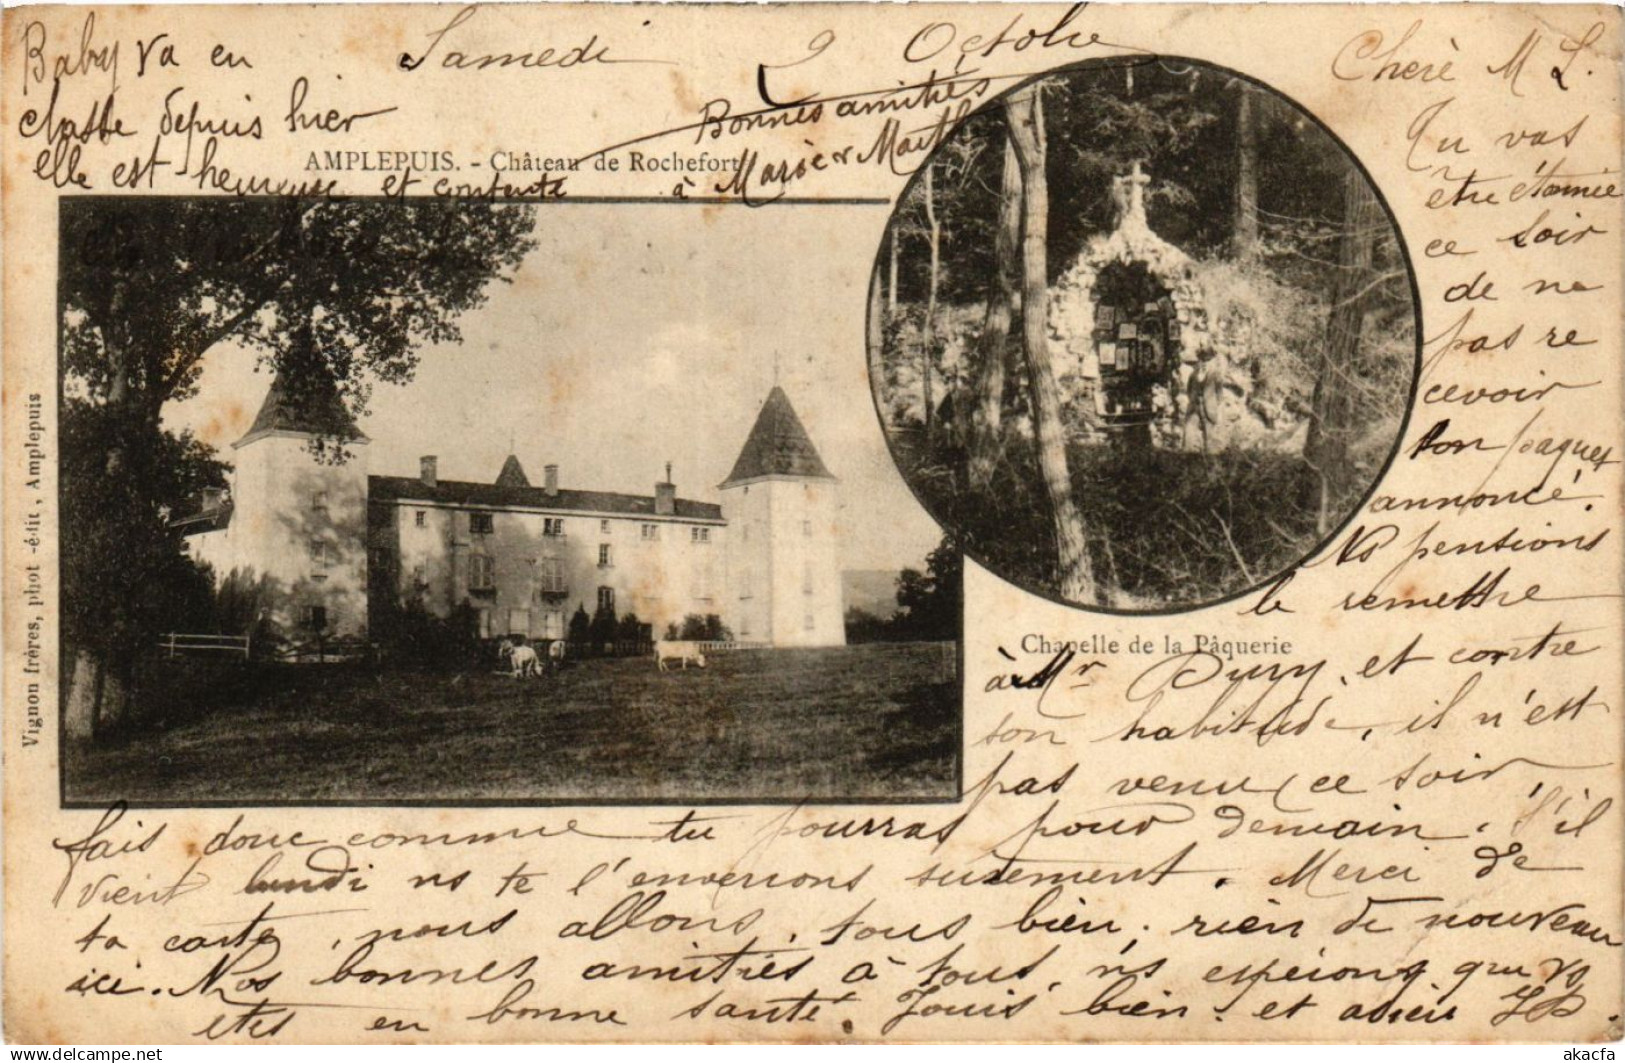 Baby va en
classe depuis hier
elle est heureuse et contente
Samedi 9 Octobre
Bonnes amitiés
à Marie et Marth
AMPLEPUIS. - Château de Rochefort
Vignon frères, phot -édit, Amplepuis
Chapelle de la Pâquerie
Chère M L.
Tu vas
être étonnée
ce soir
de ne
pas re
cevoir
ton paquet
annoncé.
Ns pensions
le remettre
à Mr Dury, et contre
son habitude, il n'est
pas venu ce soir,
fais donc comme tu pourras pour demain. S'il
vient lundi ns te l'enverrons surement. Merci de
ta carte, nous allons tous bien, rien de nouveau
ici. Nos bonnes amitiés à tous, ns espérons que vs
êtes en bonne santé. Jouis bien. et adieu
akacfa
www.delcampe.net